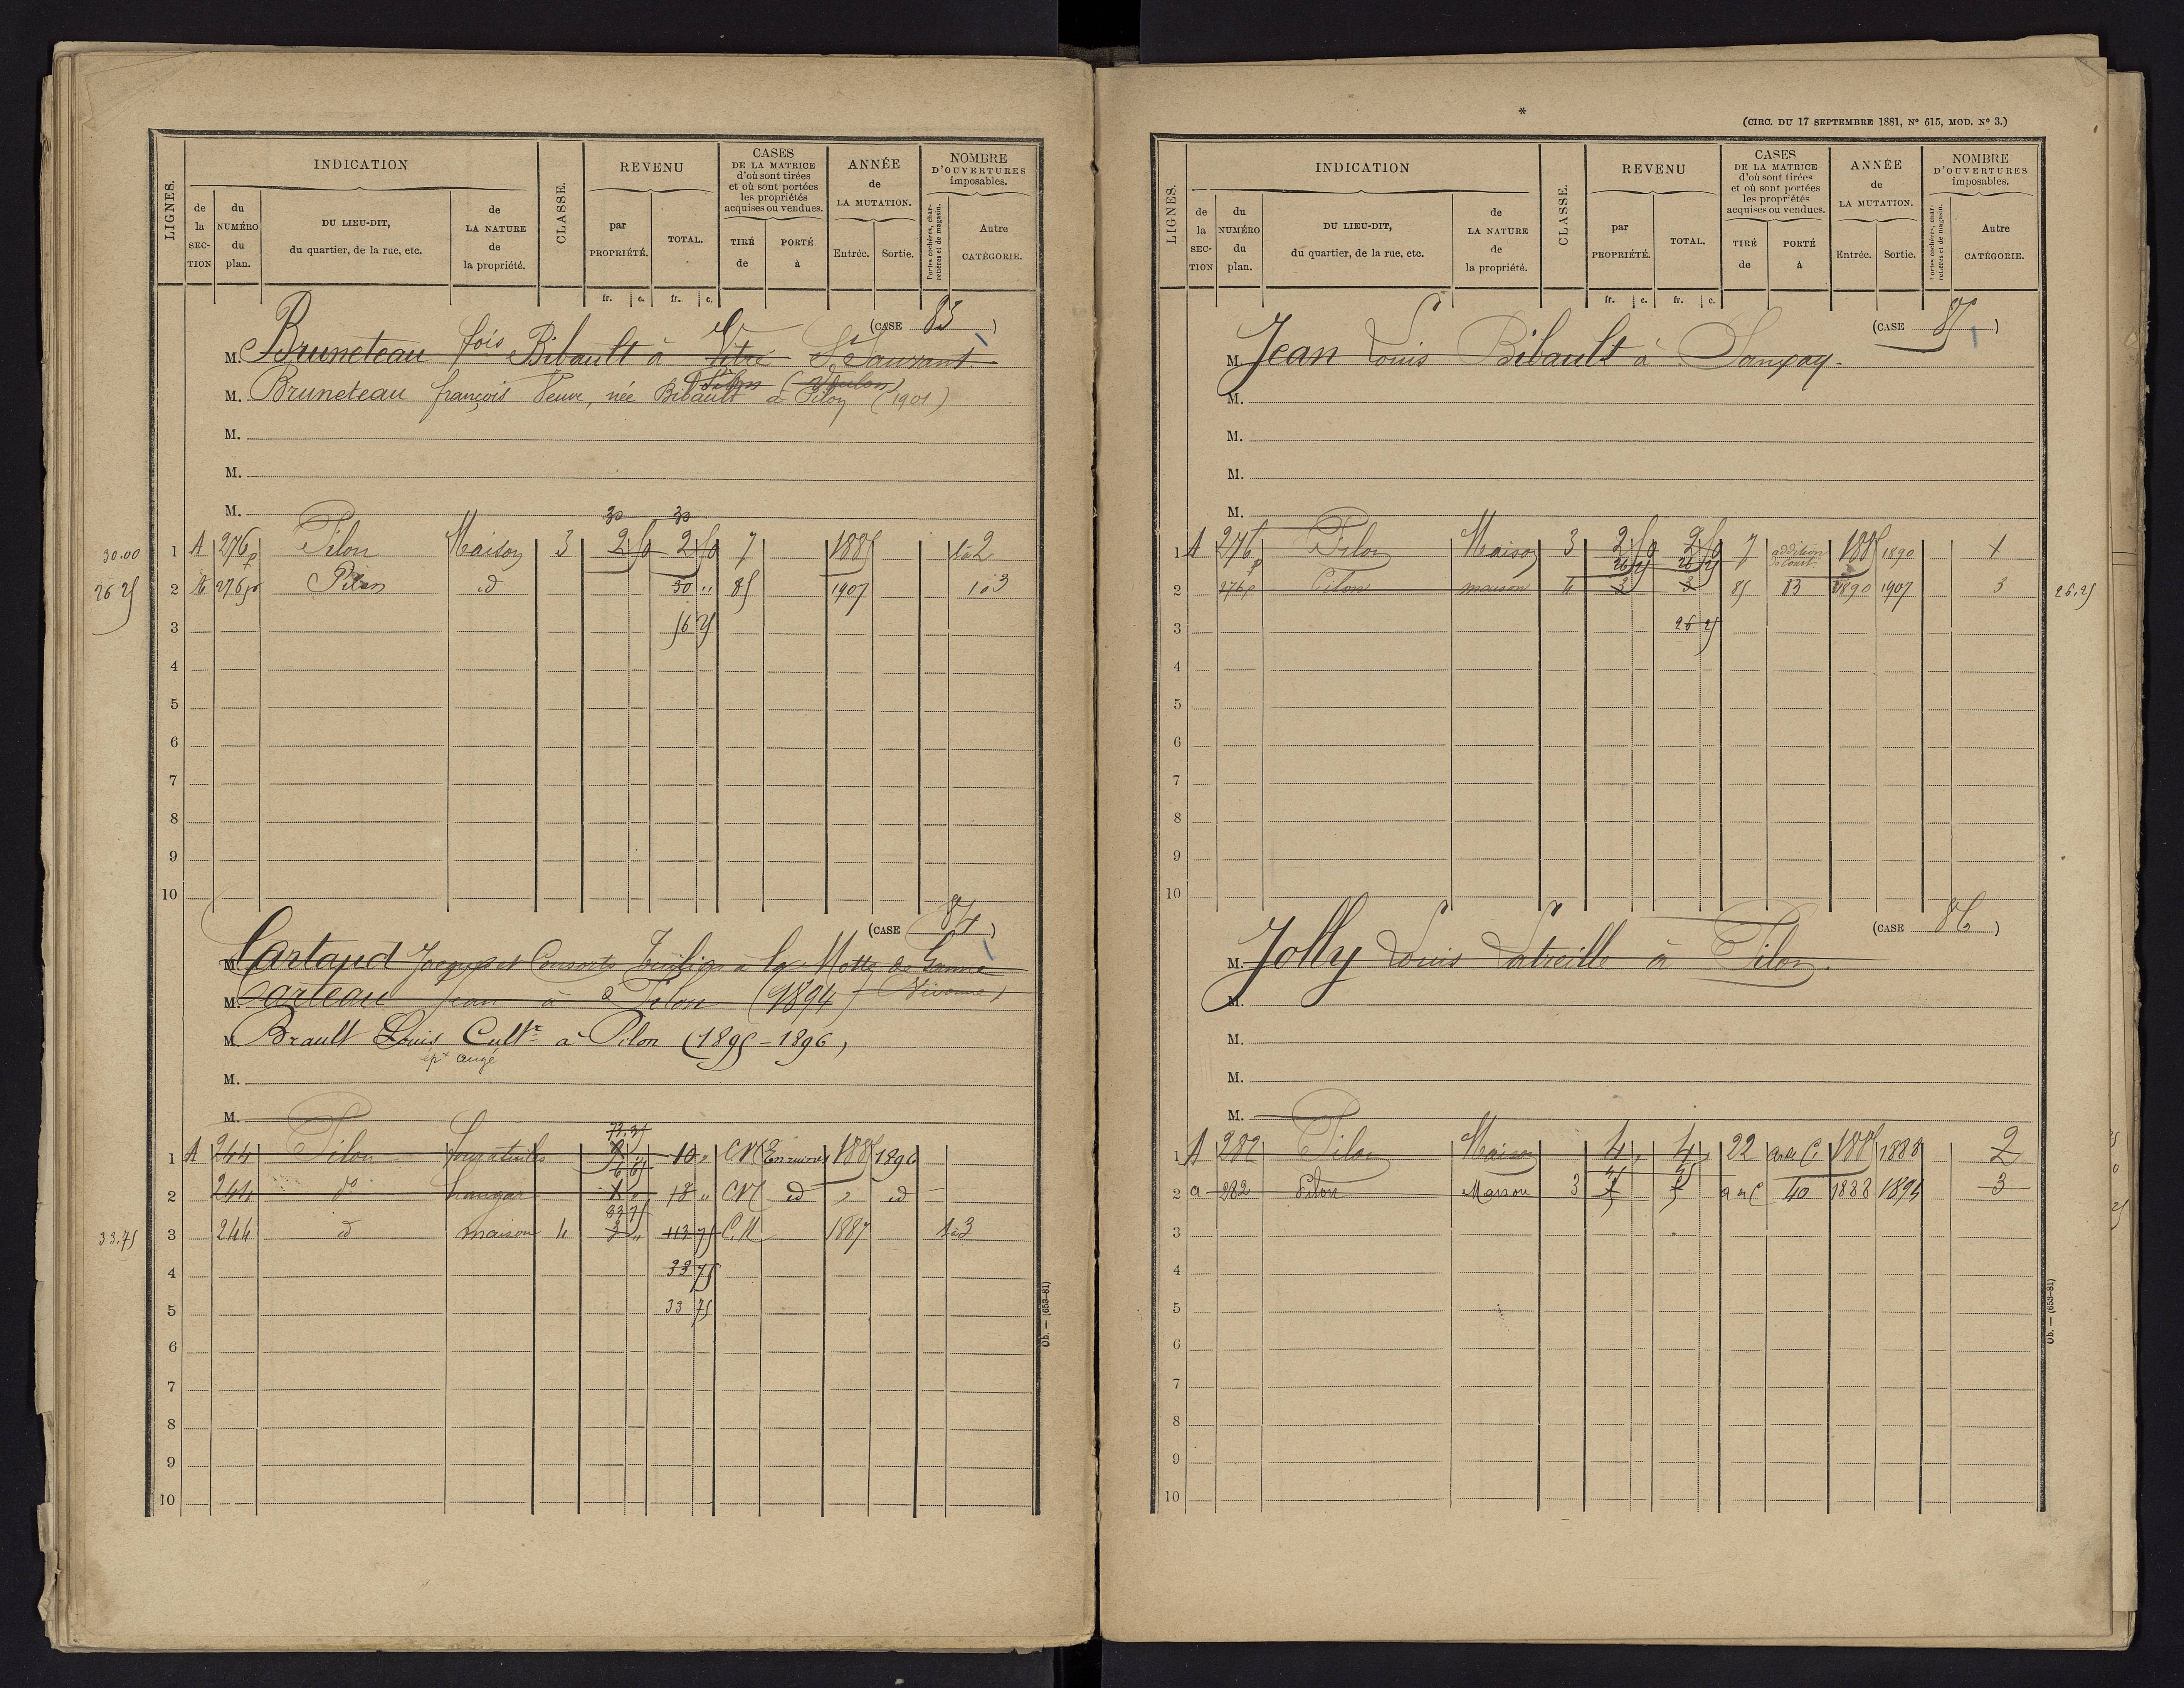 LIGNES. INDICATION CLASSE. REVENU CASES DE LA MATRICE d'où sont tirées et où sont portées les propriétés acquises ou vendues. ANNÉE de LA MUTATION. NOMBRE D'OUVERTURES imposables.
de la SECTION du NUMÉRO du plan. DU LIEU-DIT, du quartier, de la rue, etc. de LA NATURE de la propriété. par PROPRIÉTÉ. TOTAL. TIRÉ de PORTÉ à Entrée. Sortie. Portes cochères, charretières et de magasin. Autre CATÉGORIE.
fr. c. fr. c.
(CASE 83)
M. Bruneteau fois Bibault à Vitré St Sauvant
M. Bruneteau françois Veuve, née Bibault à Pilon (1901)
M.
M.
M.
30 30
30.00 1 A 276p Pilon Maison 3 2 50 2 50 7 1885 1à2
26 25 2 A 276p Pilon d 30 " 85 1907 1à3
3 56 25
4
5
6
7
8
9
10
(CASE 84)
M. Cartaud Jacques et Consorts à la Motte de
M. Carteau Jean à Pilon (1894) Vivonne)
M. Brault Louis Cultr à Pilon (1895-1896)
épx Augé
M.
M.
1 A 244 Pilon 10 " C.M En ruines 1885 1896
2 244 do hangar 1 " 18 " CM d " d
33 75
33.75 3 244 d maison 4 3 " 113 75 C.N 1887 1à3
4 33 75
5 33 75
6
7
8
9
10
Ob. — (653-81)
*
(CIRC. DU 17 SEPTEMBRE 1881, No 615, MOD. No 3.)
LIGNES. INDICATION CLASSE. REVENU CASES DE LA MATRICE d'où sont tirées et où sont portées les propriétés acquises ou vendues. ANNÉE de LA MUTATION. NOMBRE D'OUVERTURES imposables.
de la SECTION du NUMÉRO du plan. DU LIEU-DIT, du quartier, de la rue, etc. de LA NATURE de la propriété. par PROPRIÉTÉ. TOTAL. TIRÉ de PORTÉ à Entrée. Sortie. Portes cochères, charretières et de magasin. Autre CATÉGORIE.
fr. c. fr. c.
(CASE 85)
M. Jean Louis Bibault à Sanxay.
M.
M.
M.
M.
1 A 276p Pilon Maison 3 2 50 2 50 7 addition de const. 1885 1890 1
26 25 26 25
2 276p Pilon maison 4 3 3 85 83 1890 1907 3 26.25
3 26 25
4
5
6
7
8
9
10
(CASE 86)
M. Jolly Louis Latreille à Pilon.
M.
M.
M.
M.
1 A 282 Pilon Maison 4 " 4 " 22 a de C 1885 1888 2
2 a 282 Pilon Maison 3 5 5 a de C 40 1888 1894 3
3
4
5
6
7
8
9
10
Ob. — (653-81)